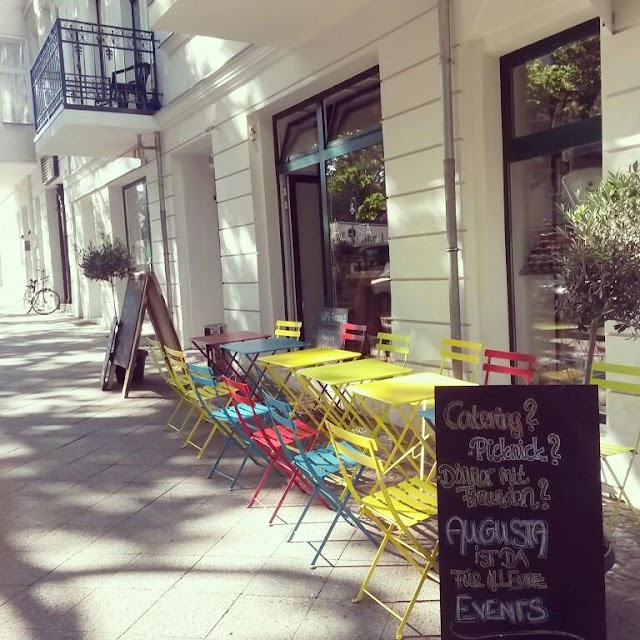 Catering?
Picknick?
Dinner mit
Freunden?
AUGUSTA
IST DA
FÜR ALL EURE
EVENTS